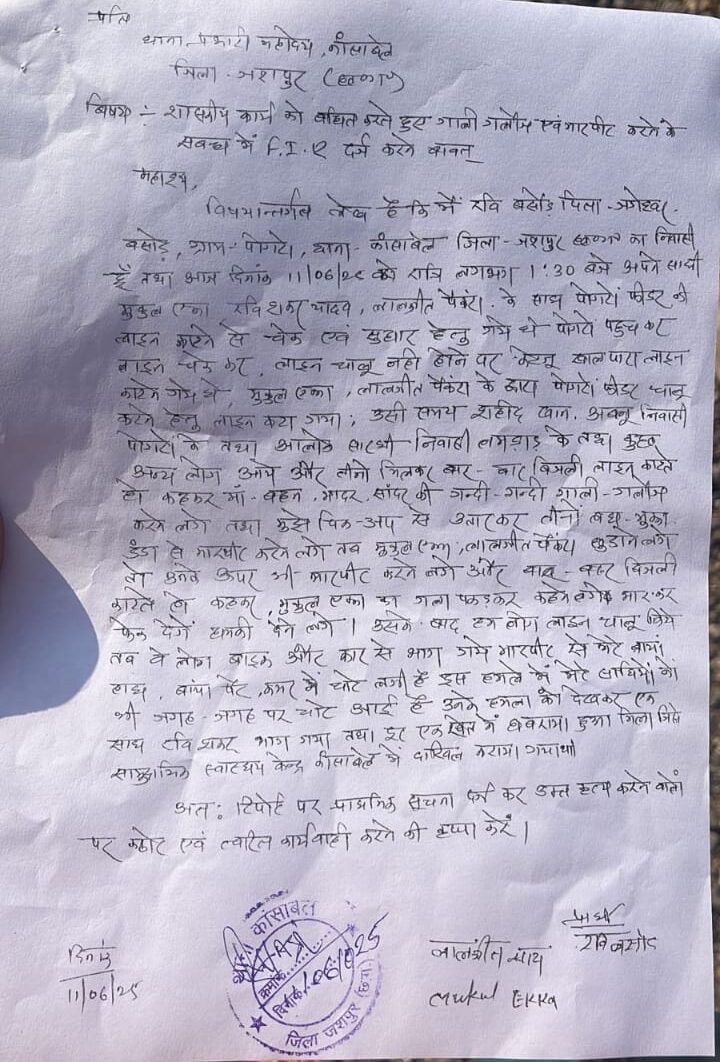 प्रति
थाना प्रभारी महोदय, काँसाबेल
जिला - जशपुर (छ०ग०)
विषय :- शासकीय कार्य को बाधित करते हुए गाली गलौज एवं मारपीट करने के
सबन्ध में F.I.R दर्ज करने बाबत्
महाशय,
विषयान्तर्गत लेख है कि मैं रवि बसोड़ पिता - जगेश्वर
बसोड़, ग्राम - पोंगरो, थाना - काँसाबेल जिला - जशपुर छ०ग० का निवासी
हूँ तथा आज दिनांक 11/06/25 को रात्रि लगभग 1:30 बजे अपने साथी
मुकुल एक्का रविशंकर यादव, लालजीत पैंकरा के साथ पोंगरो फीडर की
लाइन काटने से चेक एवं सुधार हेतु गये थे पोंगरो पहुच कर
लाइन चेक कर, लाइन चालू नही होने पर खालपारा लाइन
काटने गये थे, मुकुल एक्का, लालजीत पैंकरा के द्वारा पोंगरो फीडर चालू
करने हेतु लाइन काटा गया, उसी समय शहीद खान, निवासी
पोंगरो के तथा आलोक सारथी निवासी के तथा कुछ
अन्य लोग आये और तीनो मिलकर बार - बार बिजली लाइन काटते
हो कहकर माँ - बहन, मादर की गन्दी - गन्दी गाली - गलौज
करने लगे तथा मुझे पिक-अप से उतारकर तीनों
डंडा से मारपीट करने लगे तब मुकुल एक्का, लालजीत पैंकरा छुडाने लगे
तो उनके ऊपर भी मारपीट करने लगे और बार - बार बिजली
काटते हो कहकर, मुकुल एक्का का गला पकड़कर कहने लगे मारकर
फेक देगें धमकी देने लगे। उसके बाद हम लोग लाइन चालू किये
तब वे लोग बाइक और कार से भाग गये मारपीट से मेरे बायां
हाथ, बांया पैर, कमर में चोट लगी है इस हमले में मेरे साथियों को
भी जगह - जगह पर चोट आई है उनके हमला को देखकर एक
साथ रवि शंकर भाग गया तथा दूर एक खेत में घबराया हुआ मिला जिसे
सामुदायिक स्वास्थ्य केन्द्र काँसाबेल में दाखिल कराया गया
अतः रिपोर्ट पर प्राथमिक सूचना दर्ज कर उक्त कृत्य करने वालों
पर कठोर एवं त्वरित कार्यवाही करने की कृपा करें।
दिनांक
11/06/25
कांसाबेल
क्रमांक
दिनांक 1/06/2025
जिला जशपुर (छ.ग.)
लालजीत साय
Mukul EKKA
प्रार्थी
रवि बसोड